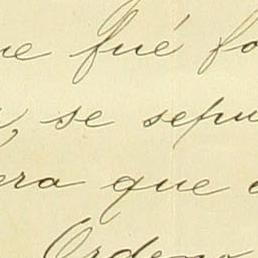 ue fué fo
, se sepu
era que
Ordeno